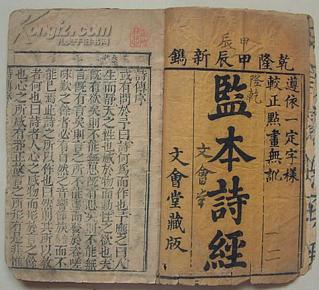 Kongfz.com
甲
辰
乾隆甲辰新鐫
遵依一定字樣
較正點畫無訛
乾隆
監本詩經
文會堂
文會堂藏版
詩傳序
或有問於予曰詩何為而作也予應之曰人
生而靜天之性也感於物而動性之欲也夫
既有欲矣則不能無思既有思矣則不能無
言既有言矣則言之所不能盡而發於咨嗟
咏歎之餘者必有自然之音響節族而不
能已焉此詩之所以作也曰然則其所以教
者何也曰詩者人心之感物而形於言之餘
也心之所感有邪正故言之所形有是非惟